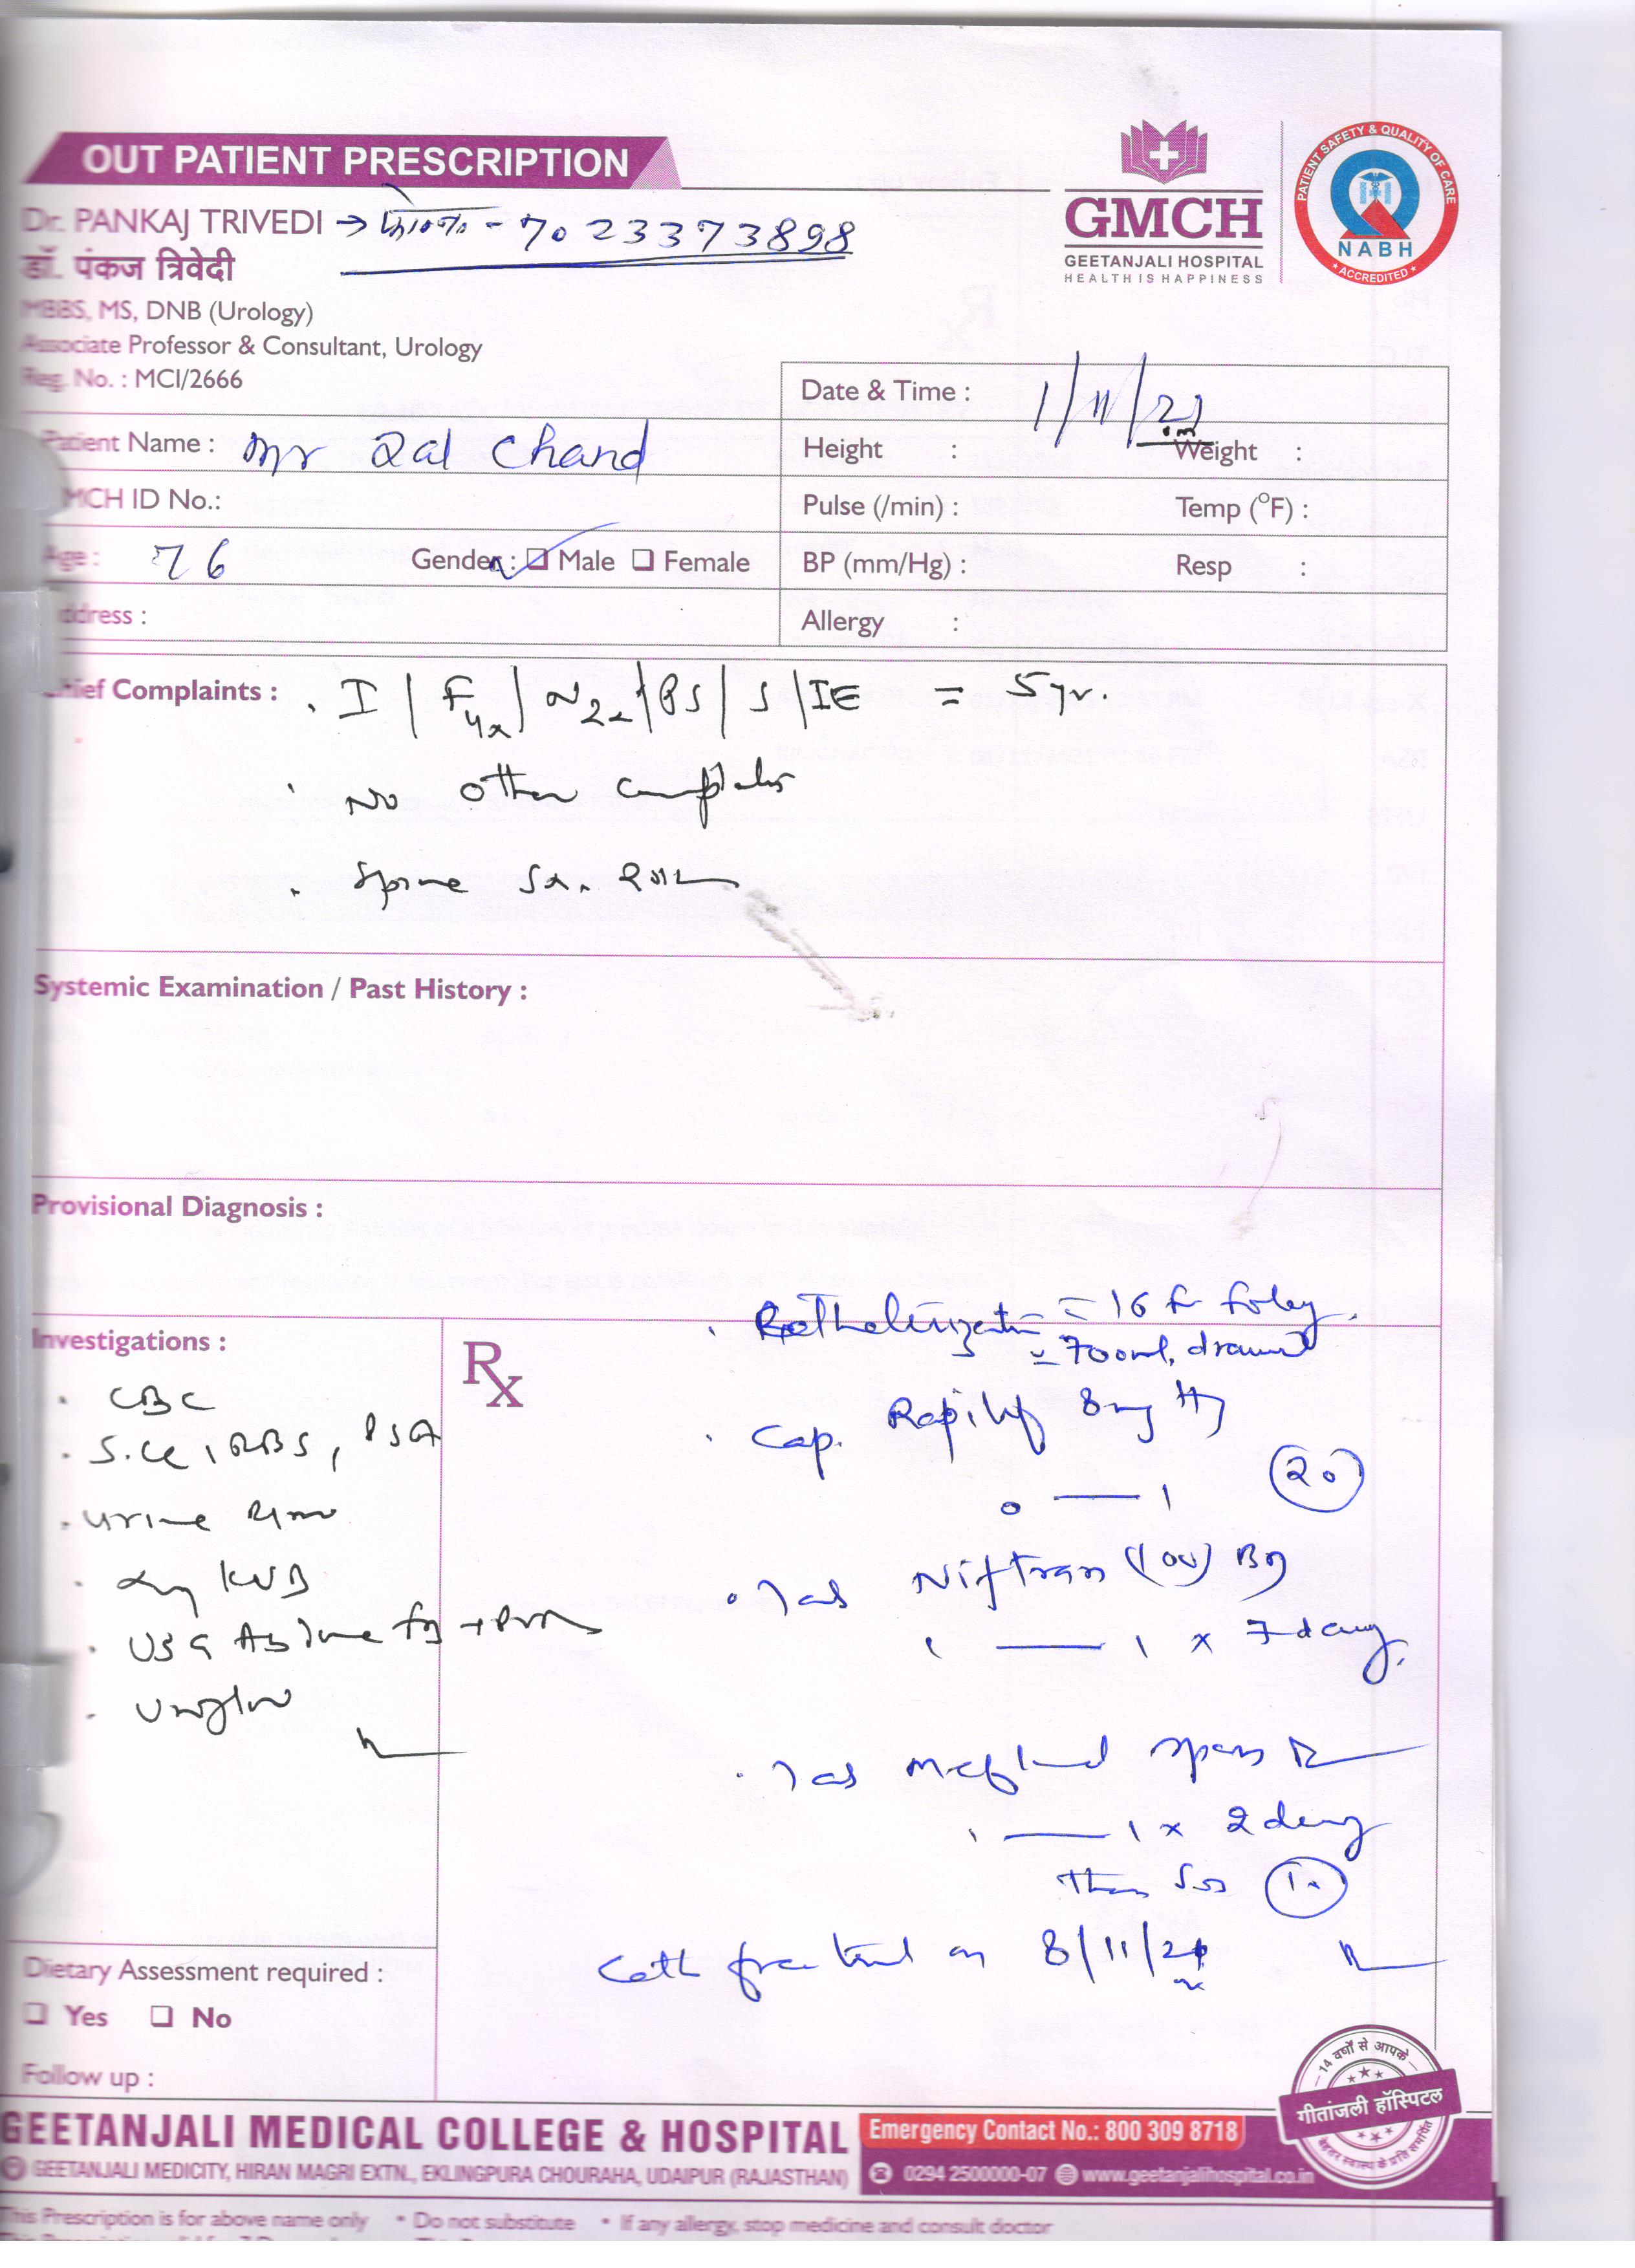 OUT PATIENT PRESCRIPTION
GMCH
GEETANJALI HOSPITAL
HEALTH IS HAPPINESS
PATIENT SAFETY & QUALITY OF CARE
NABH
ACCREDITED
Dr. PANKAJ TRIVEDI → - 7023373898
डॉ. पंकज त्रिवेदी
MBBS, MS, DNB (Urology)
Associate Professor & Consultant, Urology
Reg. No. : MCI/2666
Date & Time : 1/11/
Patient Name : Mr Lal Chand
Height : Weight :
MCH ID No.:
Pulse (/min) : Temp (°F) :
Age : 76 Gender : Male Female
BP (mm/Hg) : Resp :
Address :
Allergy :
Chief Complaints : I / F4x / N2x / PS / S / IE = 5 yr.
No other
Spine Sx.
Systemic Examination / Past History :
Provisional Diagnosis :
Investigations :
CBC
S.Cr, RBS, PSA
Urine
KUB
USG
Rx
16 fr foley.
700ml, drained
Cap. 8mg
0 — 1 (20)
Tab Niftran (100) BD
1 — 1 x 7 days.
Tab Meftal spas
1 — 1 x 2 days
then SOS (10)
Cath free trial on 8/11/21
Dietary Assessment required :
Yes No
Follow up :
14 वर्षों से आपके
गीतांजली हॉस्पिटल
बेहतर स्वास्थ्य के प्रति समर्पित
GEETANJALI MEDICAL COLLEGE & HOSPITAL
Emergency Contact No.: 800 309 8718
GEETANJALI MEDICITY, HIRAN MAGRI EXTN., EKLINGPURA CHOURAHA, UDAIPUR (RAJASTHAN)
0294 2500000-07 www.geetanjalihospital.co.in
This Prescription is for above name only • Do not substitute • If any allergy, stop medicine and consult doctor